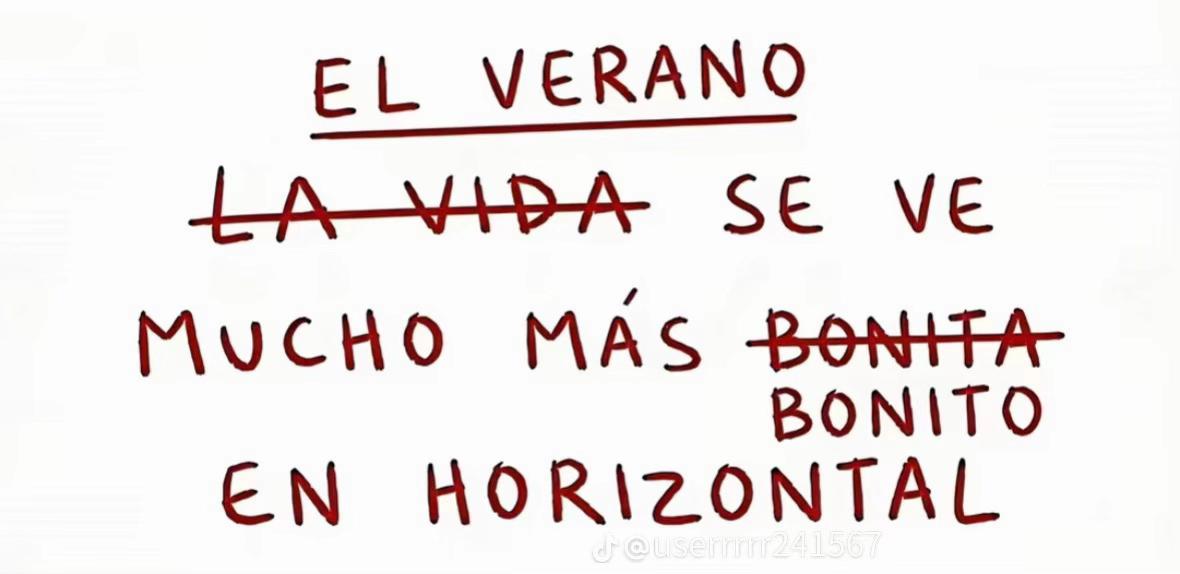 EL VERANO
LA VIDA SE VE
MUCHO MÁS BONITA
BONITO
EN HORIZONTAL
@userrrrr241567